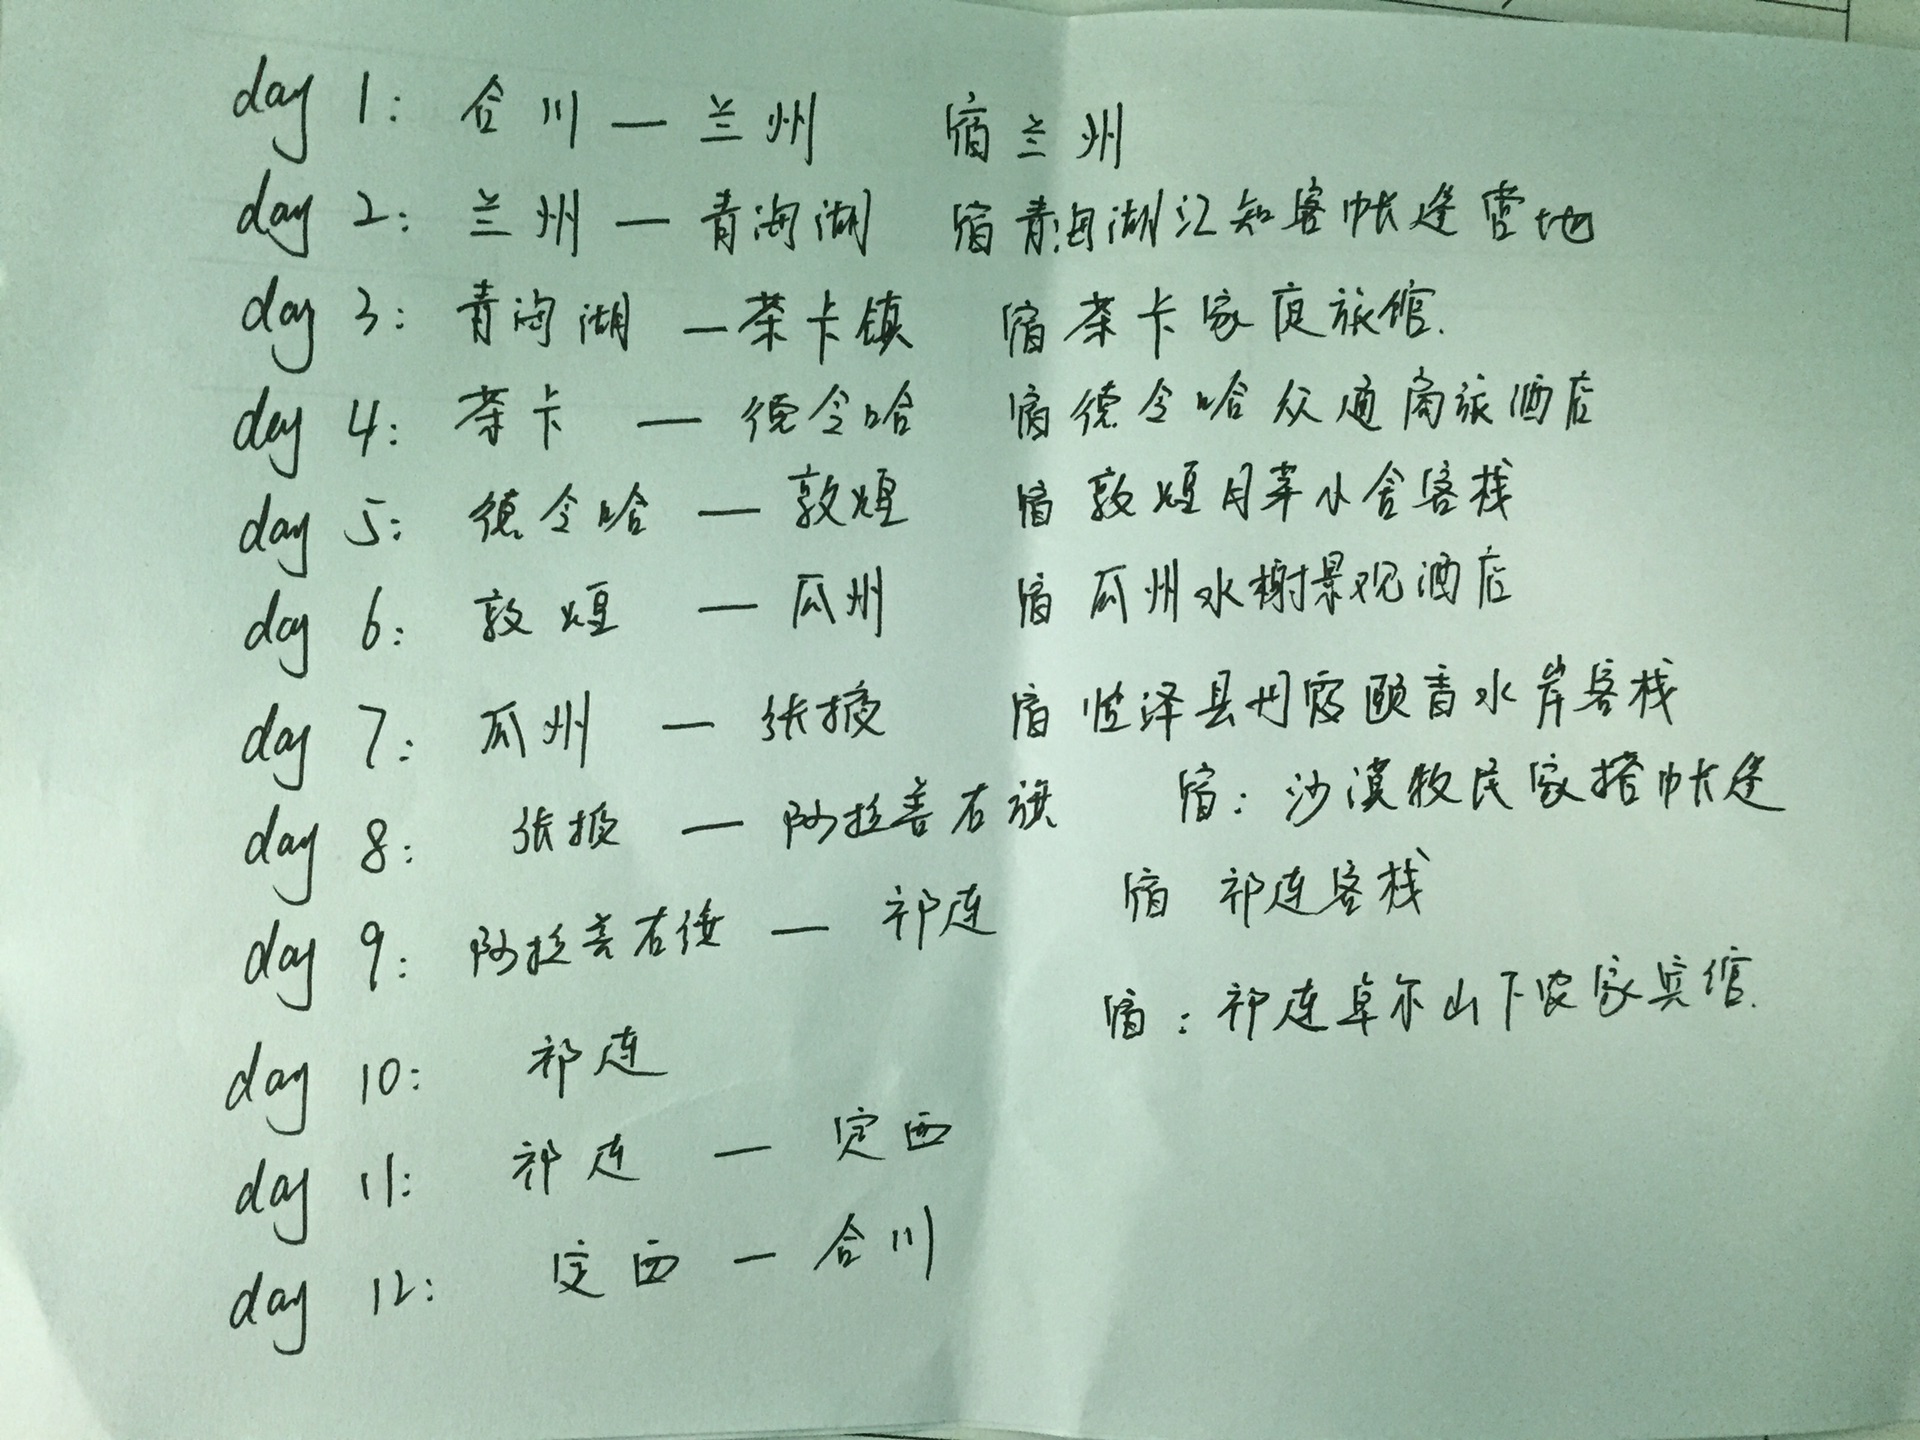 day 1: 合川 — 兰州 宿兰州
day 2: 兰州 — 青海湖 宿青海湖江知客帐逢营地
day 3: 青海湖 — 茶卡镇 宿茶卡家庭旅馆.
day 4: 茶卡 — 德令哈 宿德令哈众通商旅酒店
day 5: 德令哈 — 敦煌 宿敦煌月芽小舍客栈
day 6: 敦煌 — 瓜州 宿瓜州水榭景观酒店
day 7: 瓜州 — 张掖 宿临泽县丹霞颐香水岸客栈
day 8: 张掖 — 阿拉善右旗 宿: 沙漠牧民家搭帐逢
day 9: 阿拉善右 — 祁连 宿 祁连客栈
day 10: 祁连 宿: 祁连卓尔山下农家宾馆.
day 11: 祁连 — 定西
day 12: 定西 — 合川